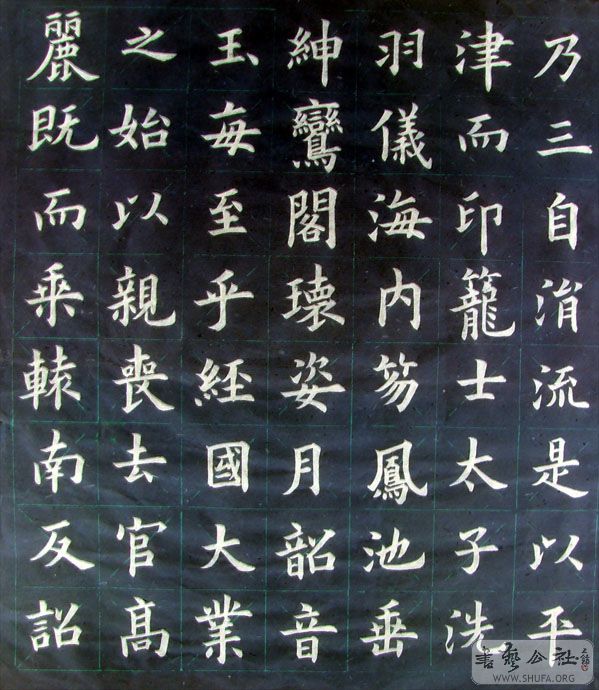 乃三自涓流是以平
津而印籠士太子洗
羽儀海内笏鳳池垂
紳鸞閣瓌姿月韶音
玉每至乎經國大業
之始以親喪去官高
麗既而乘轅南反詔
書藝公社
WWW.SHUFA.ORG